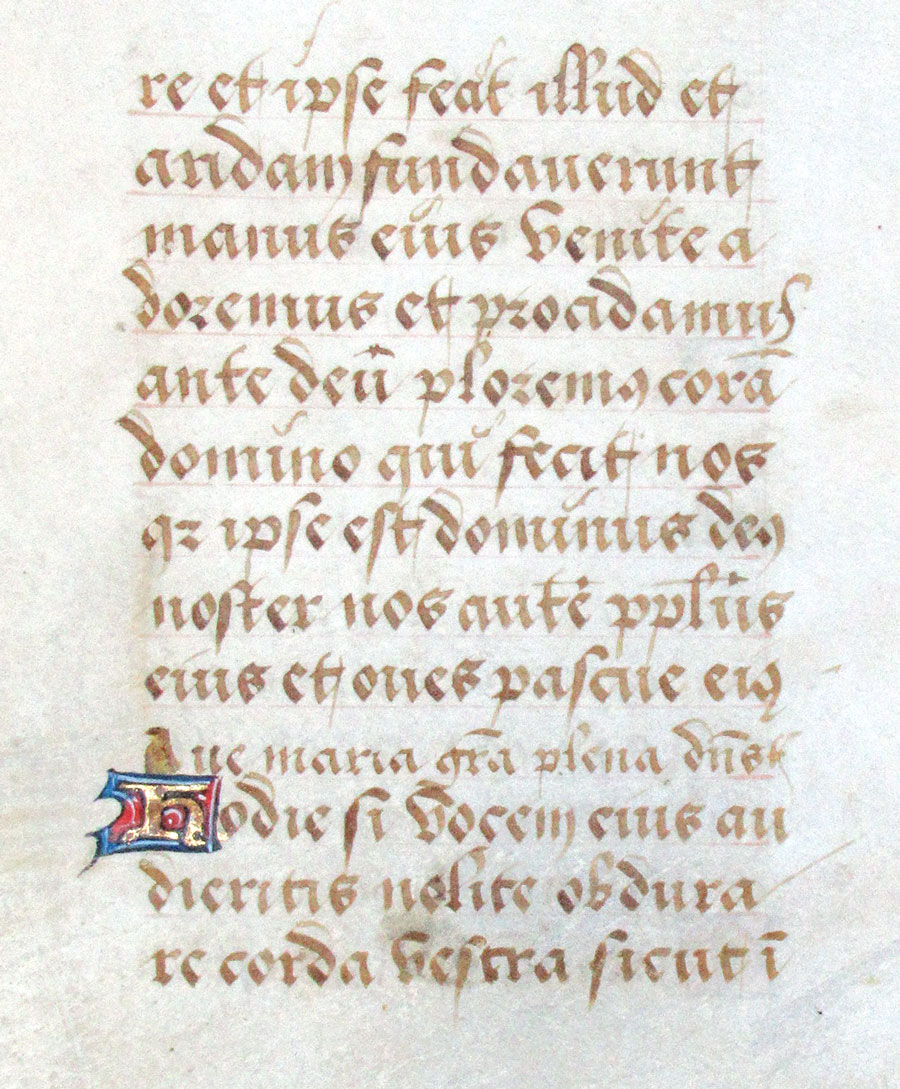 re et ipse fecit illud et
aridam fundauerunt
manus eius Venite a
doremus et procidamus
ante deū ploremꝯ corā
domino qui fecit nos
qꝛ ipse est dominus deꝯ
noster nos autē ppl̄us
eius et oues pascue eiꝯ
Aue maria gr̄a plena dn̄s t
Hodie si Vocem eius au
dieritis nolite obdura
re corda Vestra sicut ī